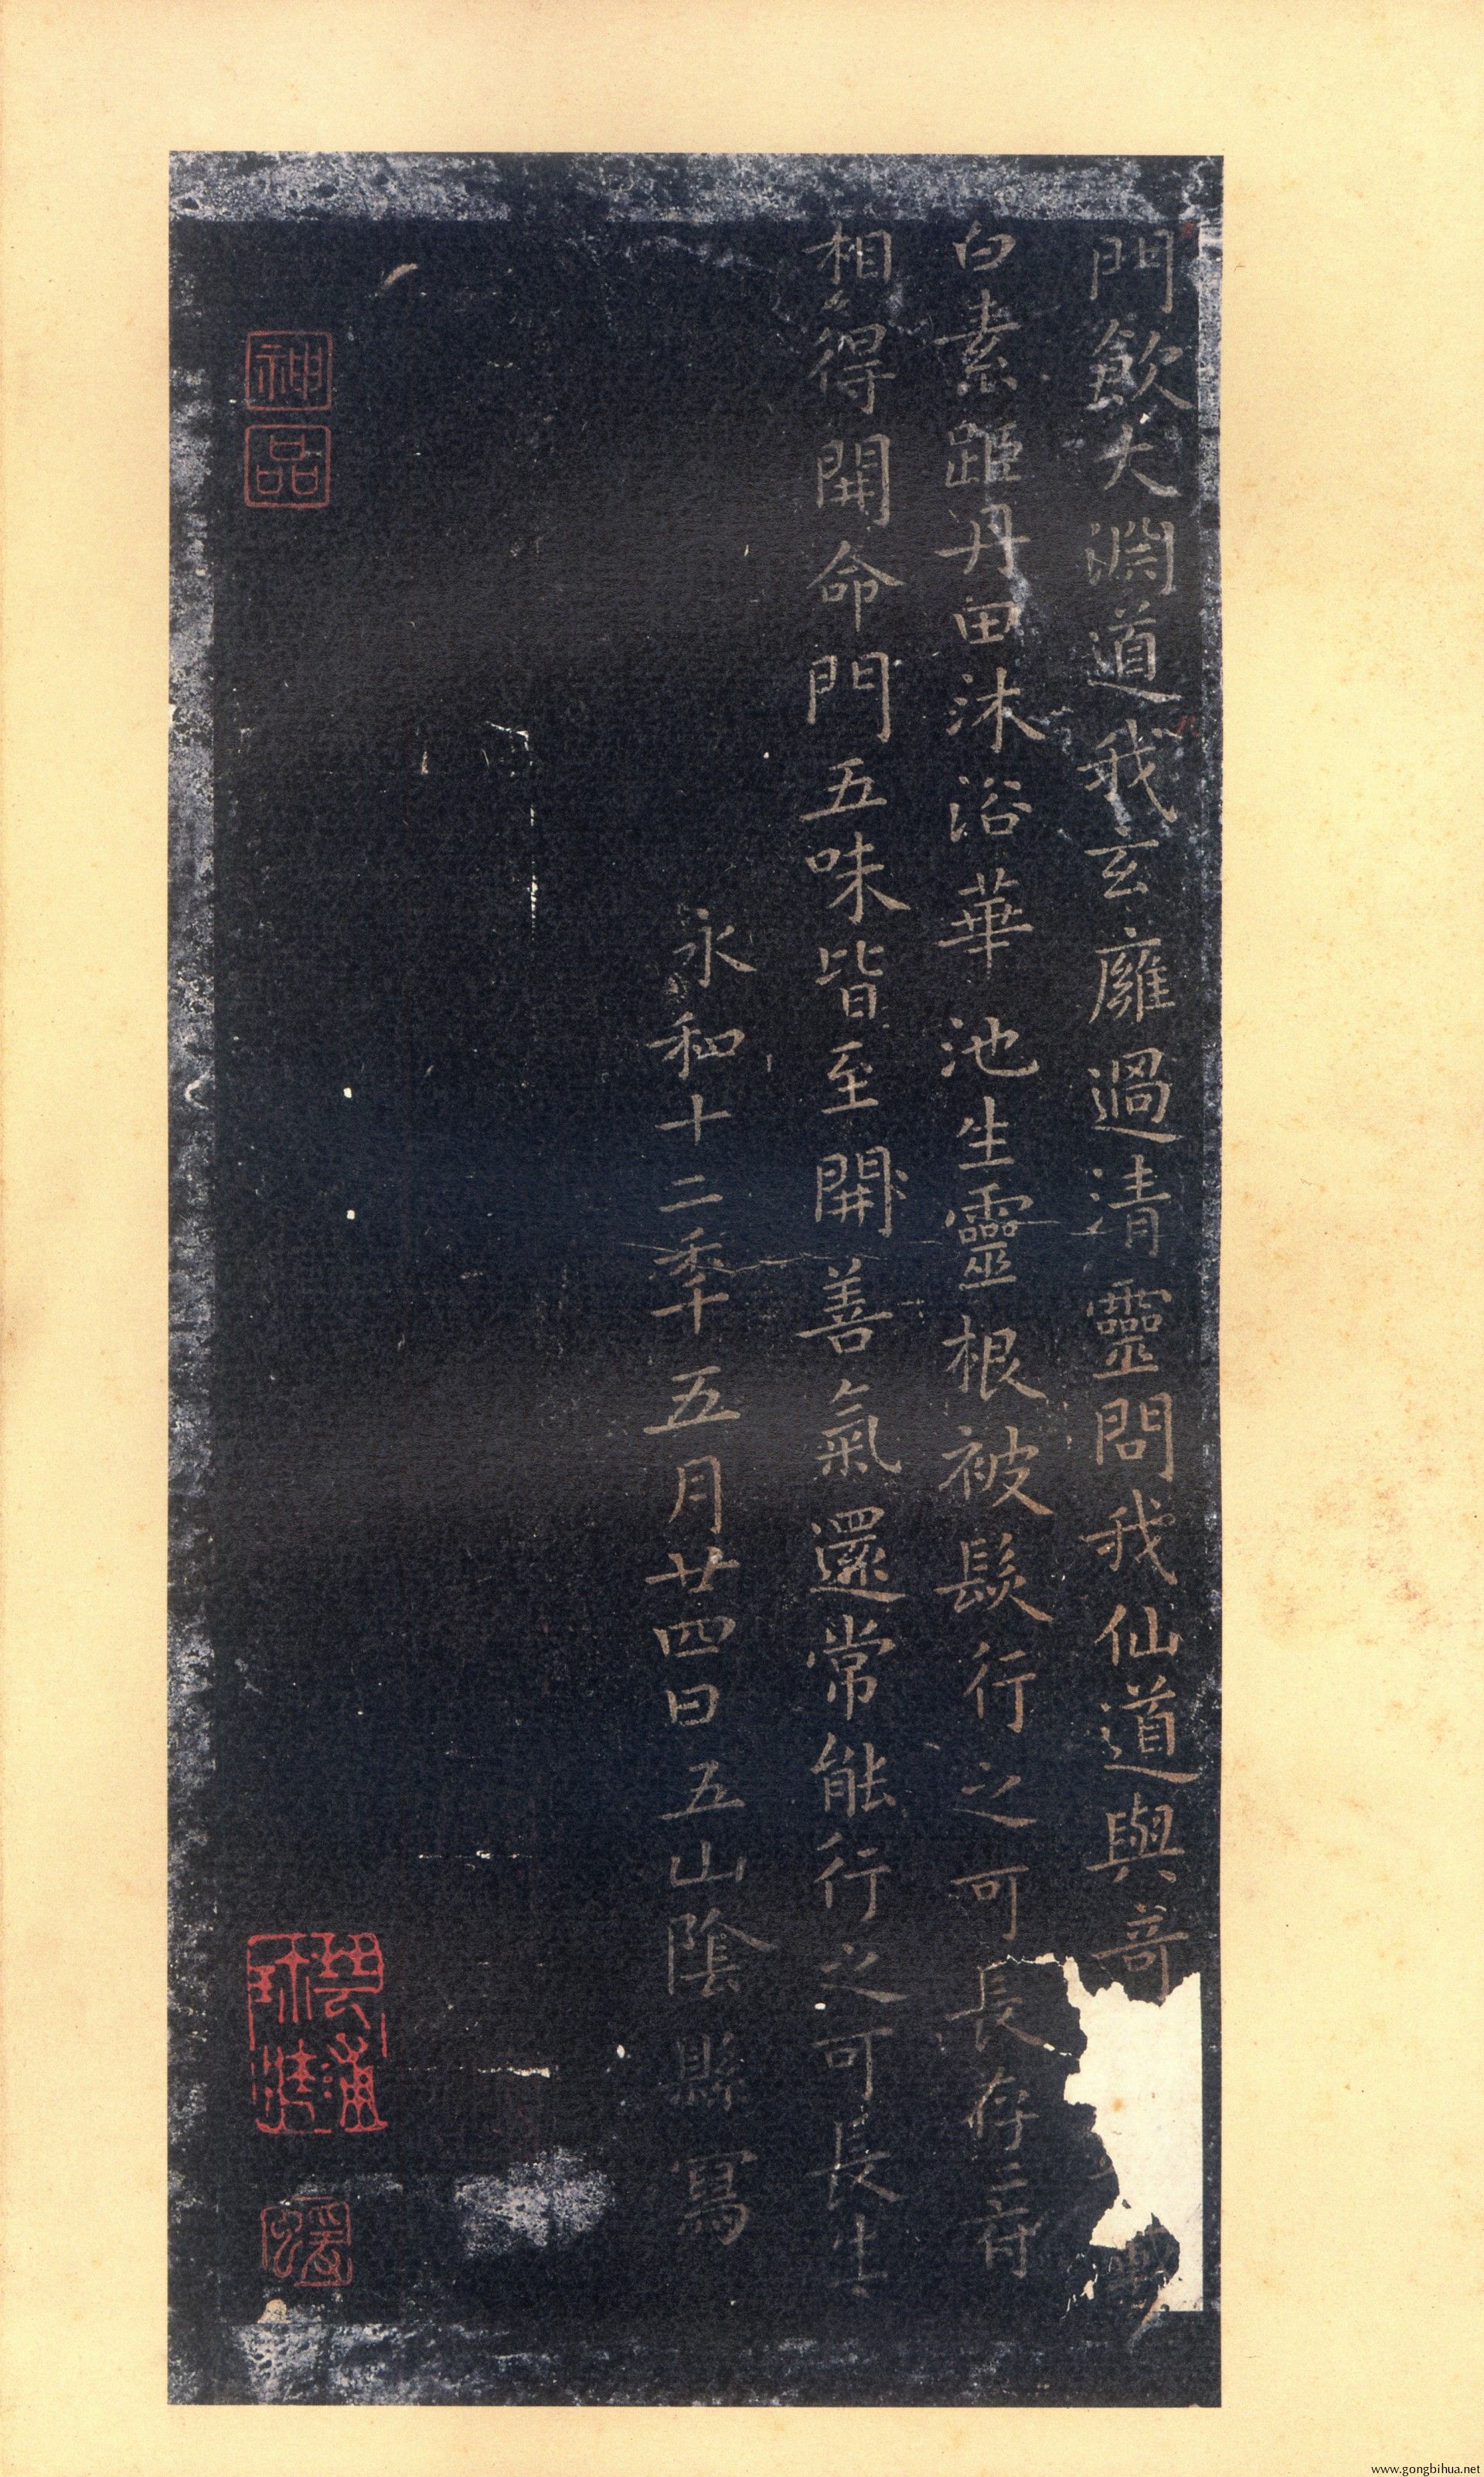 門飲大淵道我玄廱過清靈問我仙道與奇
白素距丹田沐浴華池生靈根被髮行之可長存二府
相得開命門五味皆至開善氣還常能行之可長生
永和十二年五月廿四日五山陰縣寫
神品
www.gongbihua.net